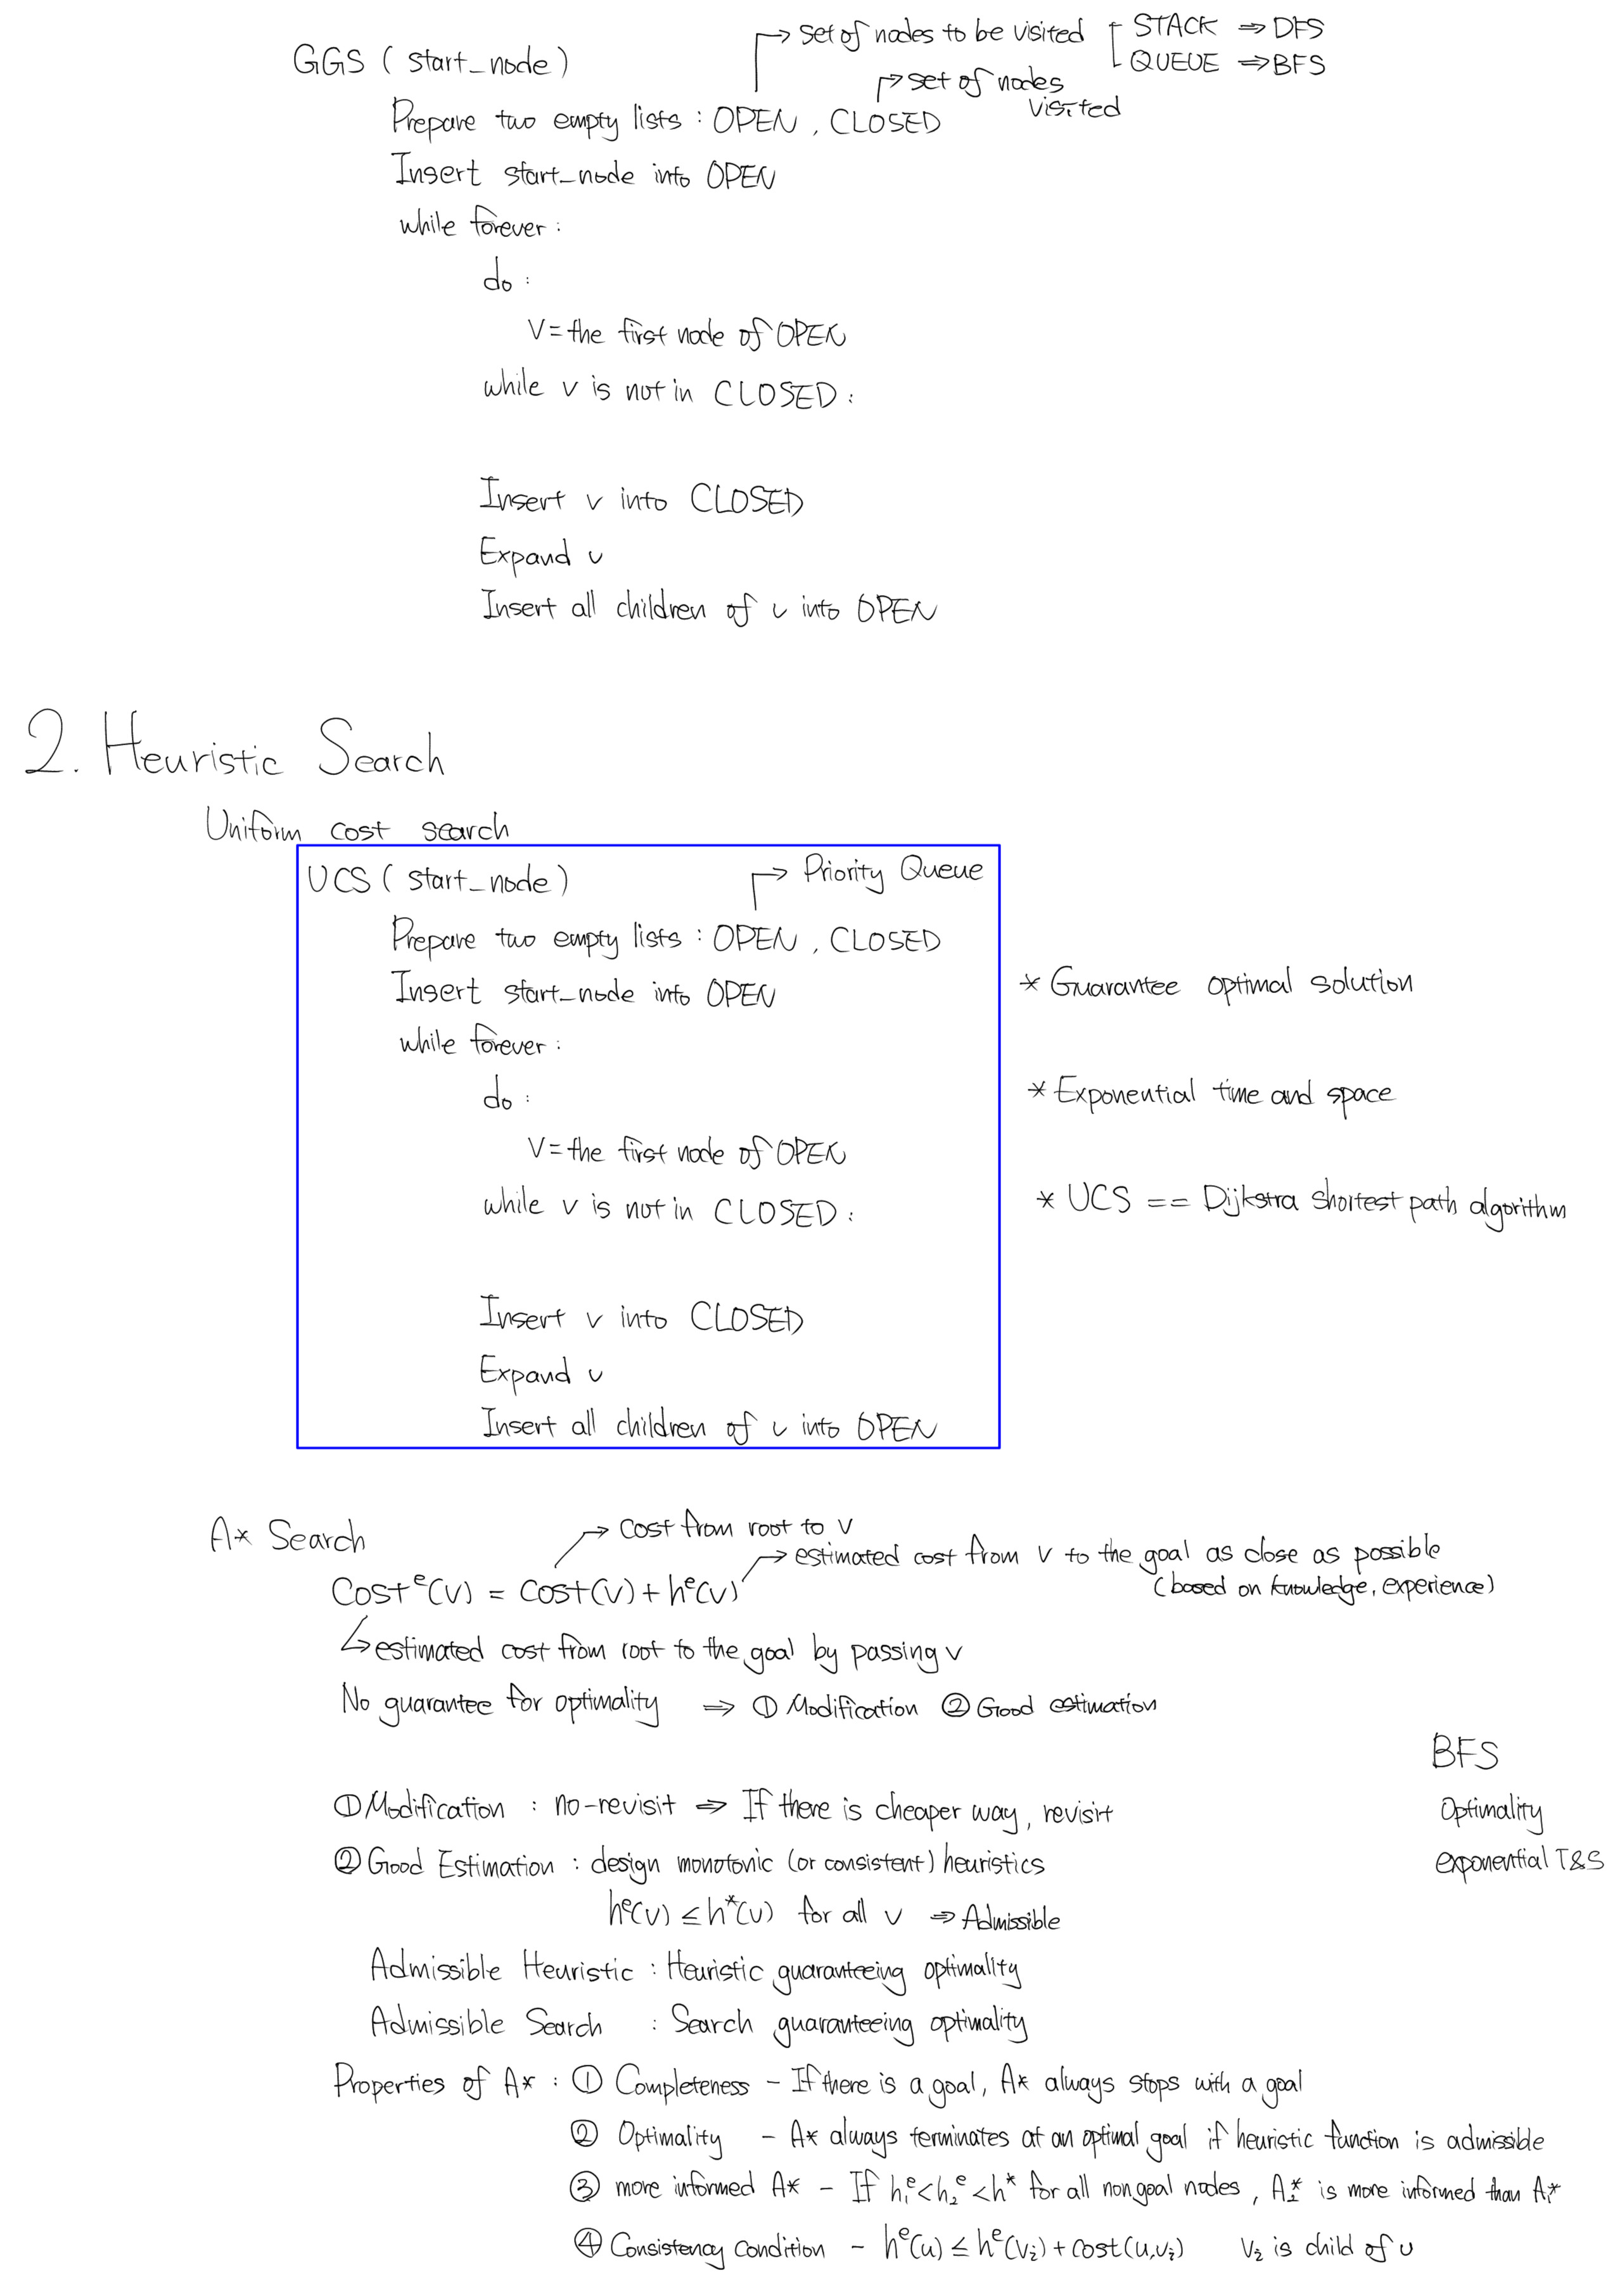 set of nodes to be visited STACK ⇒ DFS
QUEUE ⇒ BFS
GGS ( start_node )
set of nodes
visited
Prepare two empty lists : OPEN , CLOSED
Insert start_node into OPEN
while forever :
do :
V = the first node of OPEN
while v is not in CLOSED :
Insert v into CLOSED
Expand v
Insert all children of v into OPEN
2. Heuristic Search
Uniform cost search
UCS ( start_node ) → Priority Queue
Prepare two empty lists : OPEN , CLOSED
Insert start_node into OPEN
* Guarantee optimal solution
while forever :
do :
* Exponential time and space
V = the first node of OPEN
while v is not in CLOSED :
* UCS == Dijkstra shortest path algorithm
Insert v into CLOSED
Expand v
Insert all children of v into OPEN
A* Search
→ cost from root to v
→ estimated cost from v to the goal as close as possible
(based on knowledge, experience)
Costᵉ(v) = Cost(v) + hᵉ(v)
↳ estimated cost from root to the goal by passing v
No guarantee for optimality ⇒ ① Modification ② Good estimation
BFS
Optimality
exponential T&S
① Modification : no-revisit ⇒ If there is cheaper way, revisit
② Good Estimation : design monotonic (or consistent) heuristics
hᵉ(v) ≤ h*(v) for all v ⇒ Admissible
Admissible Heuristic : Heuristic guaranteeing optimality
Admissible Search : Search guaranteeing optimality
Properties of A* : ① Completeness - If there is a goal, A* always stops with a goal
② Optimality - A* always terminates at an optimal goal if heuristic function is admissible
③ more informed A* - If h₁ᵉ < h₂ᵉ < h* for all nongoal nodes, A₂* is more informed than A₁*
④ Consistency condition - hᵉ(u) ≤ hᵉ(vᵢ) + cost(u,vᵢ) vᵢ is child of u